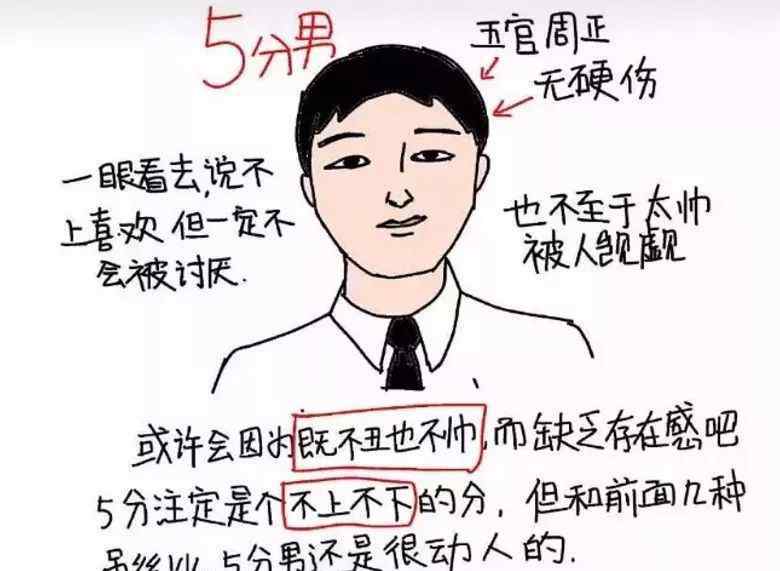 5分男
五官周正
无硬伤
一眼看去,说不
上喜欢 但一定不
会被讨厌.
也不至于太帅
被人觊觎
或许会因为既不丑也不帅,而缺乏存在感吧
5分注定是个不上不下的分，但和前面几种
5分男还是很动人的.